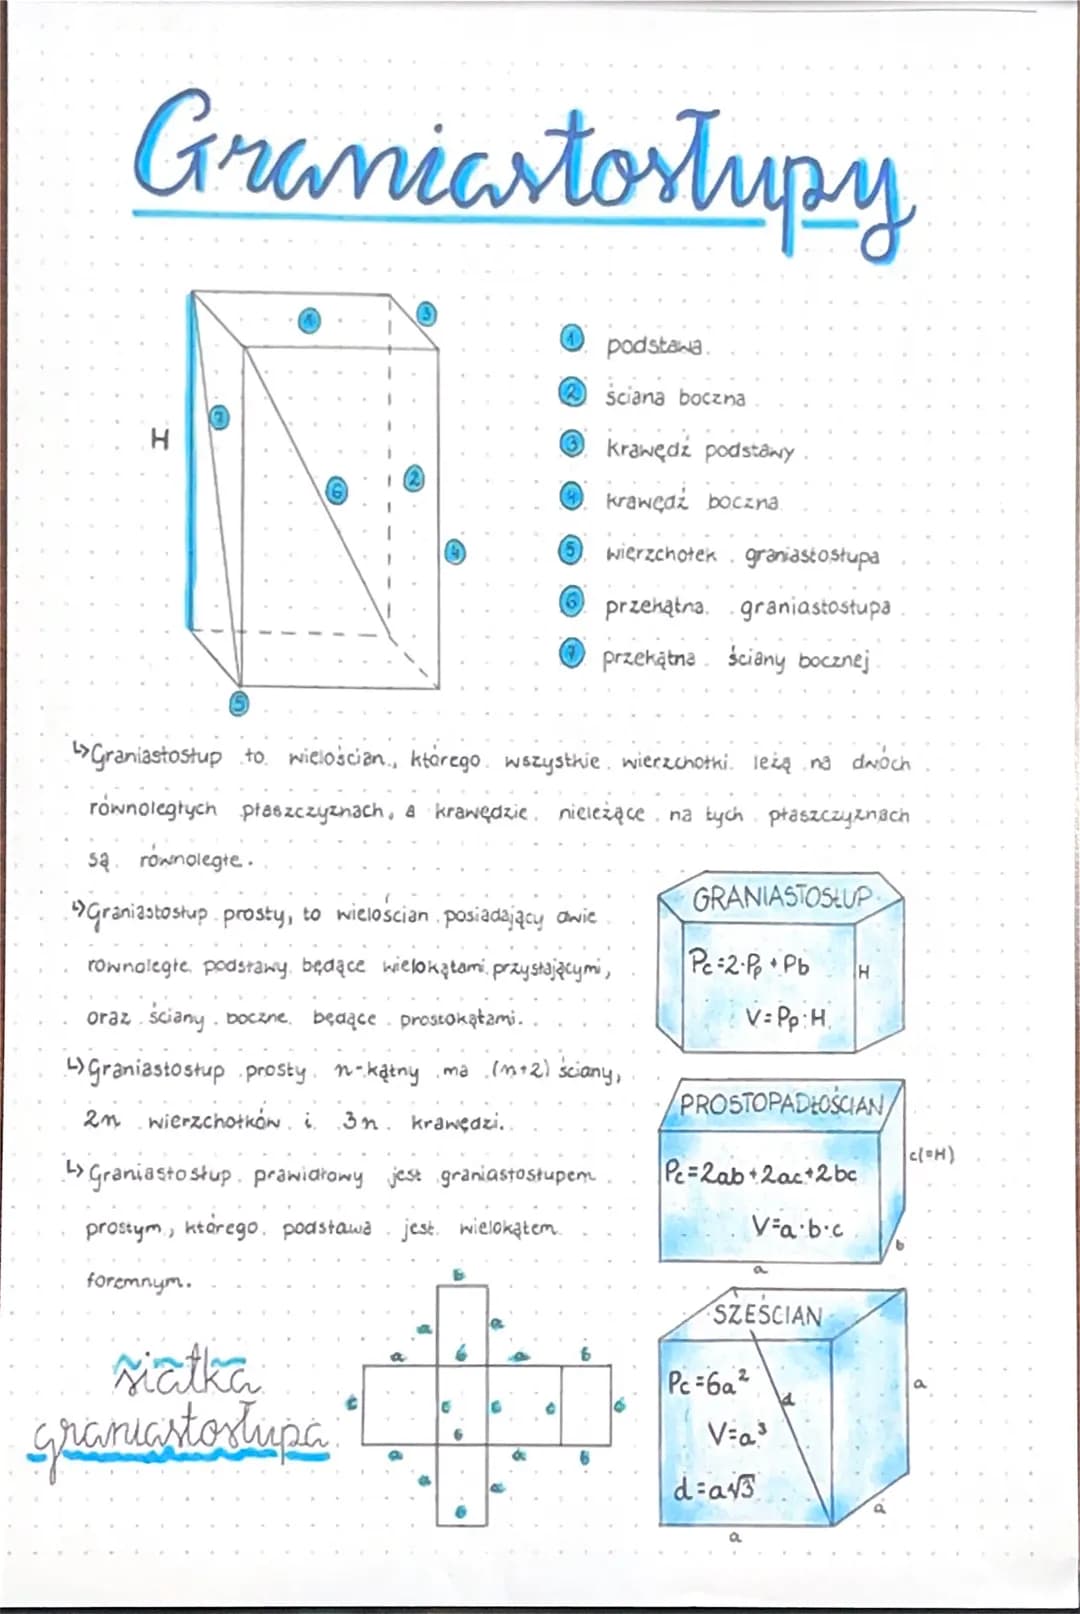 Graniastosłupy
H
1
2
3
4
5
6
7
1 podstawa
2 ściana boczna
3 krawędź podstawy
4 krawędź boczna
5 wierzchołek graniastosłupa
6 przekątna graniastosłupa
7 przekątna ściany bocznej
↳Graniastosłup to wielościan, którego wszystkie wierzchołki leżą na dwóch
równoległych płaszczyznach, a krawędzie nieleżące na tych płaszczyznach
są równoległe.
↳Graniastosłup prosty, to wielościan posiadający dwie
równoległe podstawy będące wielokątami przystającymi,
oraz ściany boczne będące prostokątami.
↳Graniastosłup prosty n-kątny ma (n+2) ściany,
2n wierzchołków i 3n krawędzi.
↳Graniastosłup prawidłowy jest graniastosłupem
prostym, którego podstawa jest wielokątem
foremnym.
GRANIASTOSŁUP
Pc=2·Pp+Pb
H
V=Pp·H
PROSTOPADŁOŚCIAN
c(=H)
Pc=2ab+2ac+2bc
V=a·b·c
b
a
SZEŚCIAN
Pc=6a²
d
a
V=a³
d=a√3
a
a
siatka
graniastosłupa
b
a a
a b a b
c c c c c
a b a b
a a
b